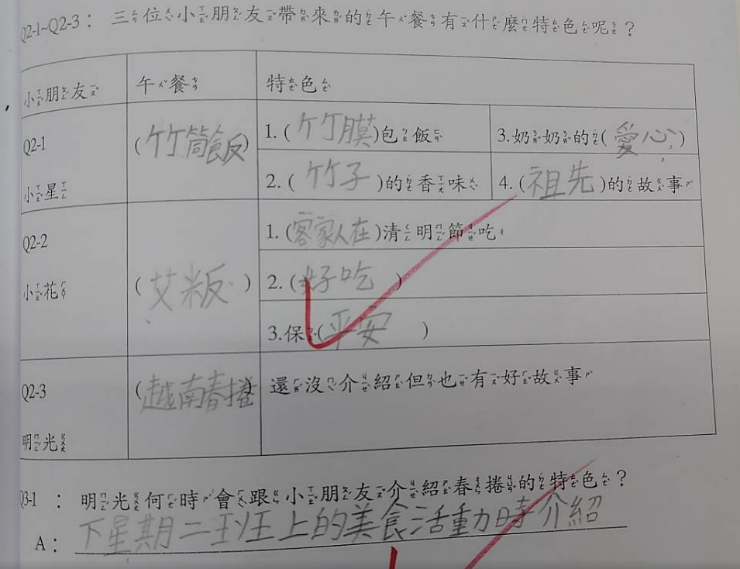 Q2-1~Q2-3：三位小朋友帶來的午餐有什麼特色呢？
小朋友 午餐 特色
Q2-1 小星 (竹筒飯) 1.(竹膜)包飯 3.奶奶的(愛心)
2.(竹子)的香味 4.(祖先)的故事
Q2-2 小花 (艾粄) 1.(客家人在)清明節吃
2.(好吃)
3.保(平安)
Q2-3 明光 (越南春捲) 還沒介紹但也有好故事
Q3-1：明光何時會跟小朋友介紹春捲的特色？
A：下星期二班上的美食活動時介紹